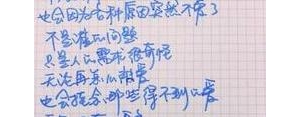 也会因为各种原因突然不爱了
不是谁的问题
只是人的需求很奇怪
无法再亲口说爱
也会接受那些得不到的爱